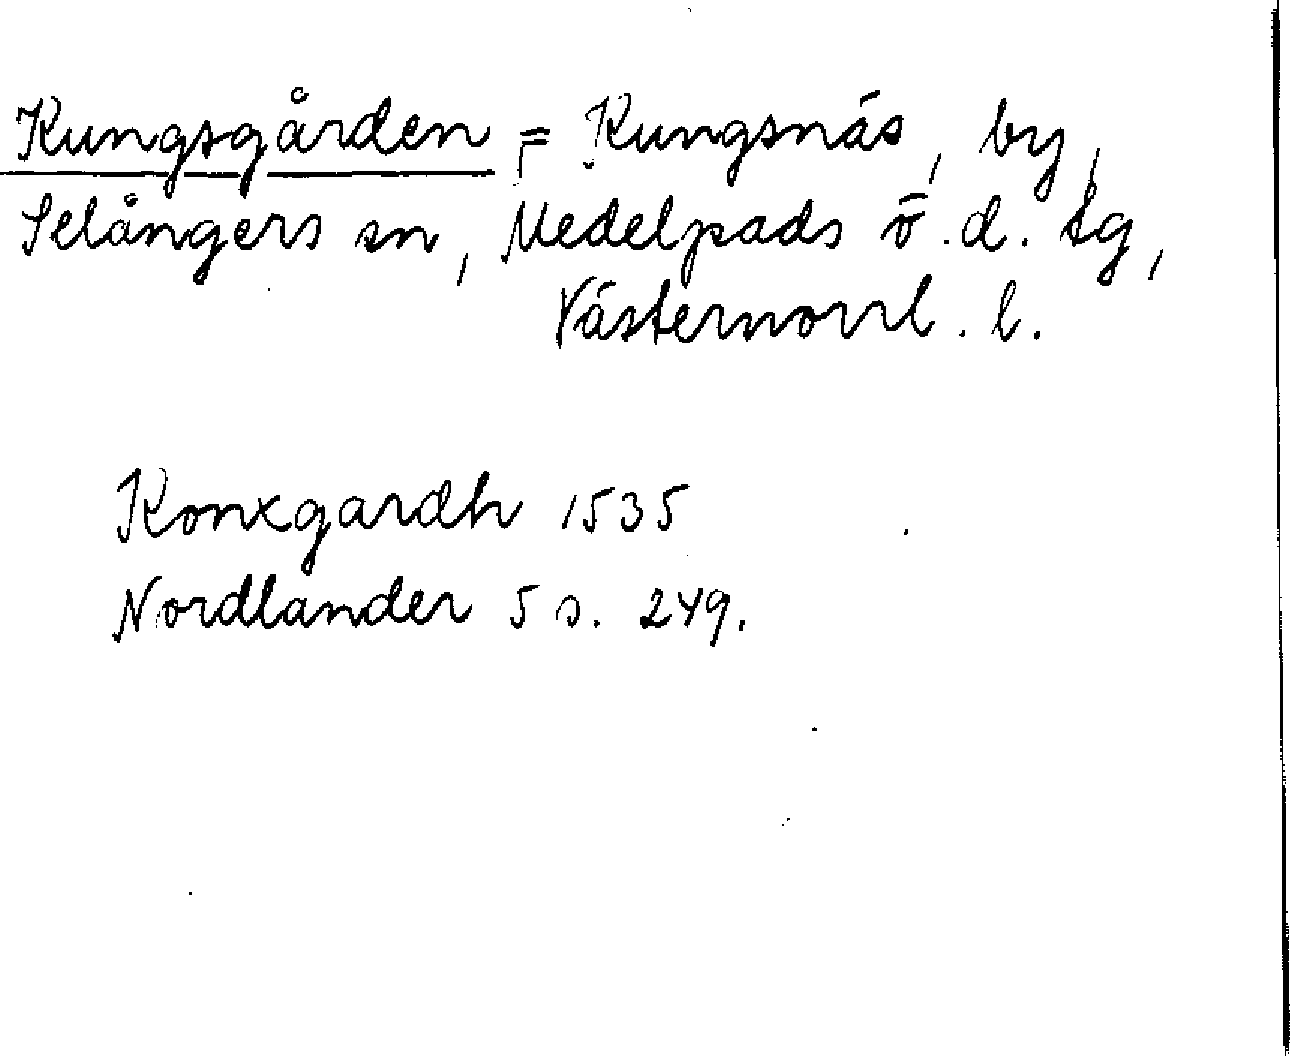 Kungsgården = Kungsnäs, by,
Selångers sn, Medelpads ö. d. tg,
Västernorrl. l.
Konxgardh 1535
Nordlander 5 s. 249.